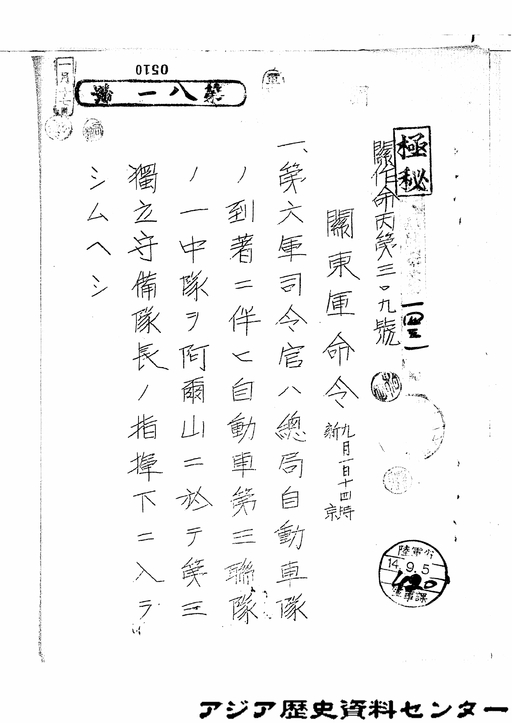 極秘
關作命丙第三〇九號
關東軍命令 九月一日十四時
新京
一、第六軍司令官ハ總局自動車隊
ノ到著ニ伴ヒ自動車第三聯隊
ノ一中隊ヲ阿爾山ニ於テ第三
獨立守備隊長ノ指揮下ニ入ラ
シムヘシ
0510
第一八號
陸軍省
14.9.5
420
アジア歴史資料センター